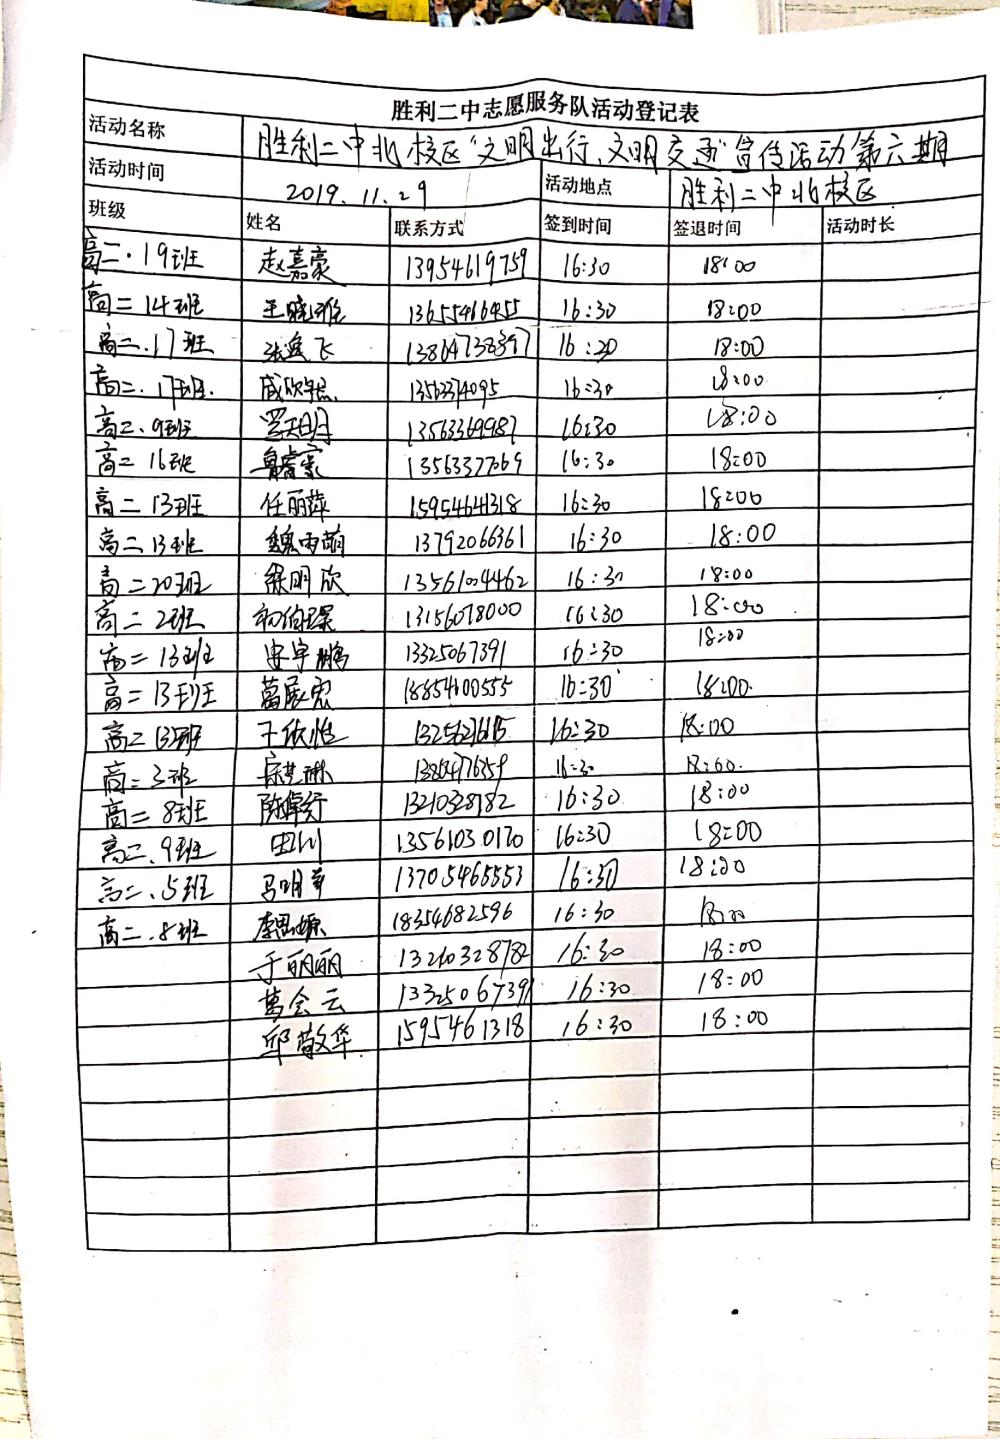 胜利二中志愿服务队活动登记表
活动名称 胜利二中北校区“文明出行、文明交通”宣传活动第六期
活动时间 2019.11.29 活动地点 胜利二中北校区
班级 姓名 联系方式 签到时间 签退时间 活动时长
高二.19班 赵嘉豪 13954619759 16:30 18:00
高二14班 王晓雅 13655466455 16:30 18:00
高二.17班 张逸飞 13864738397 16:30 18:00
高二.17班. 1356334095 16:30 18:00
高二.9班 13563369987 16:30 18:00
高二16班 鲁睿豪 13563377069 16:30 18:00
高二13班 任丽萍 15954641318 16:30 18:00
高二13班 魏雨萌 13792066361 16:30 18:00
高二20班 徐明欣 13561004462 16:30 18:00
高二2班 初伯霖 13156078000 16:30 18:00
高二13班 宇鹏 13325067391 16:30 18:00
高二13班 葛宸宏 18854600555 16:30 18:00
高二13班 于欣怡 16:30 18:00
高二3班 16:30 18:00
高二8班 13210328782 16:30 18:00
高二.9班 田川 13561030170 16:30 18:00
高二.5班 马明 13705465553 16:30 18:00
高二.8班 李思 18354682596 16:30 18:00
于丽丽 13210328782 16:30 18:00
葛会云 13325067391 16:30 18:00
邱敬华 1595461318 16:30 18:00